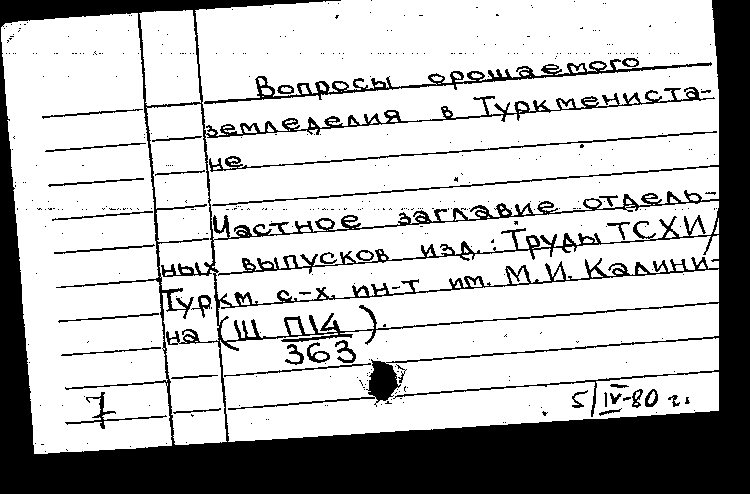 Вопросы орошаемого
земледелия в Туркмениста-
не
Частное заглавие отдель-
ных выпусков изд.: Труды ТСХИ/
Туркм. с.-х. ин-т им. М.И. Калини-
на (Ш П14/363).
7
5/IV-80 г.